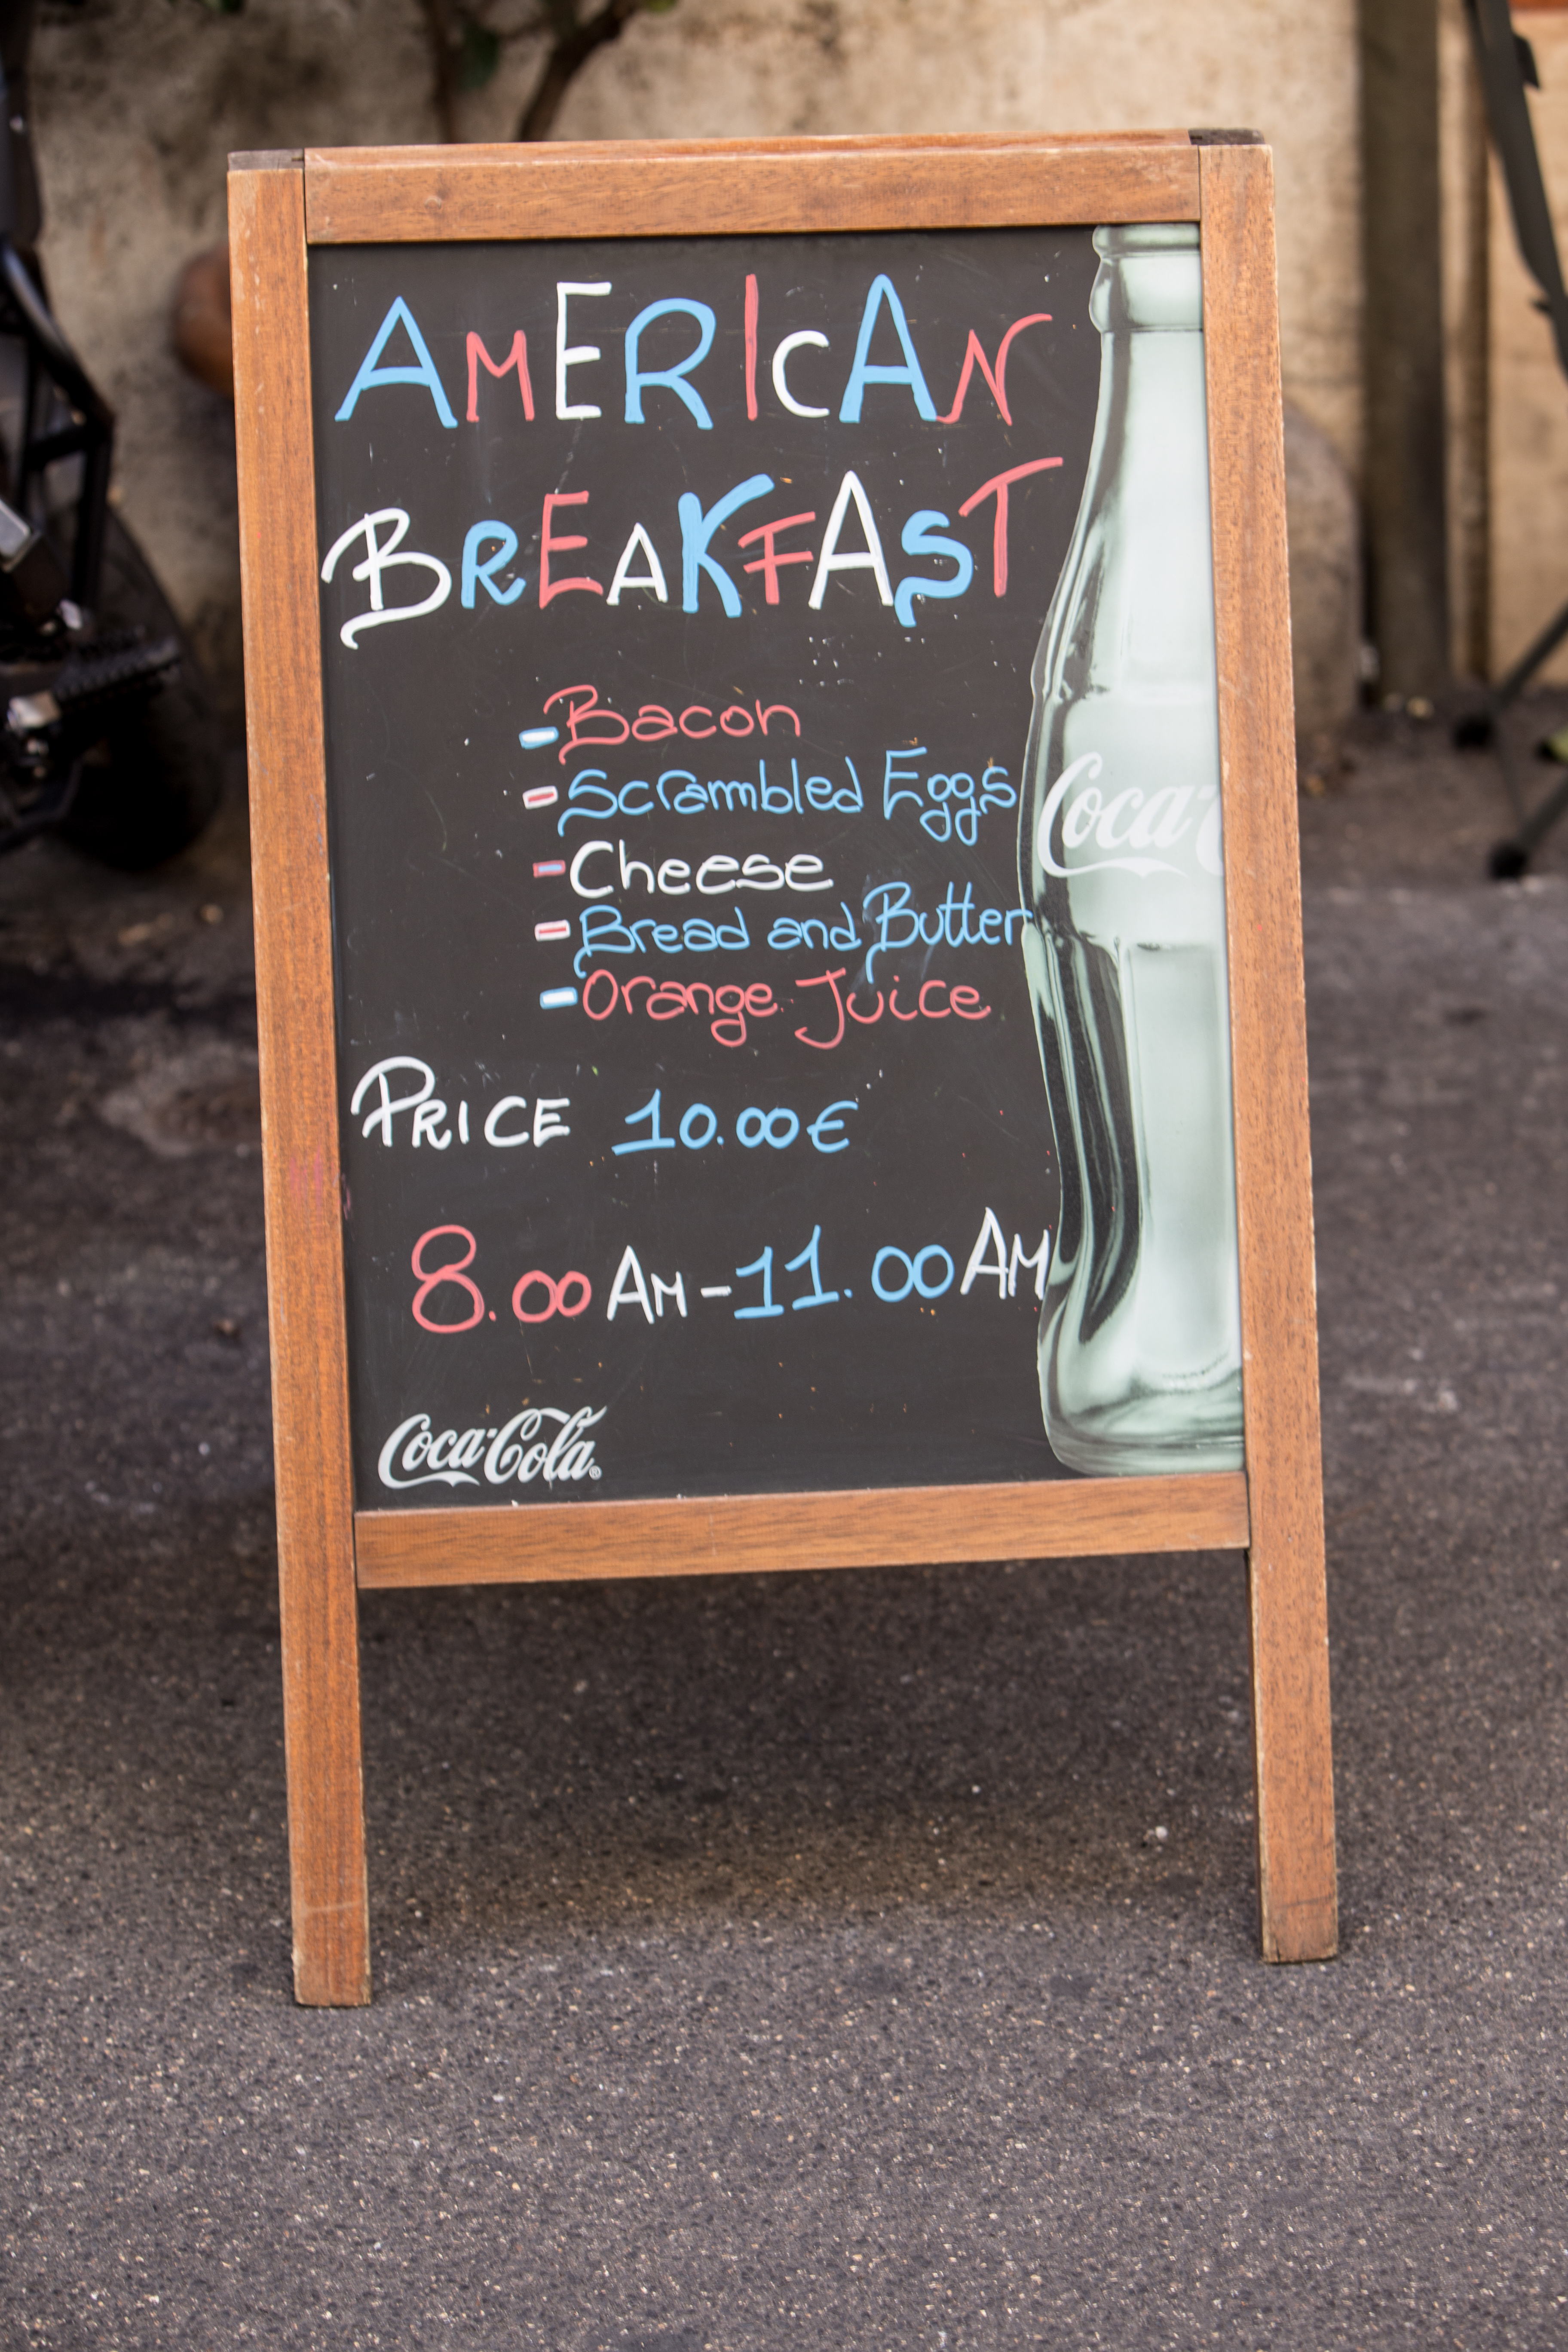 AMERICAN
BREAKFAST
- Bacon
- Scrambled Eggs
- Cheese
- Bread and Butter
- Orange Juice
Coca-C
PRICE 10.00€
8.00 AM - 11.00 AM
Coca-Cola®